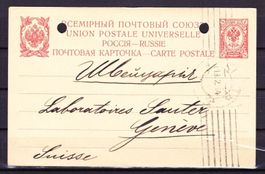 ВСЕМІРНЫЙ ПОЧТОВЫЙ СОЮЗЪ
UNION POSTALE UNIVERSELLE
РОССІЯ—RUSSIE
ПОЧТОВАЯ КАРТОЧКА—CARTE POSTALE
Швейцарія
Laboratoires Sauter
Genève
Suisse